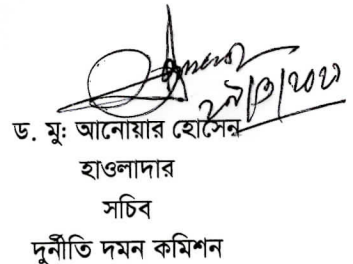 ড. মু: আনোয়ার হোসেন
হাওলাদার
সচিব
দুর্নীতি দমন কমিশন